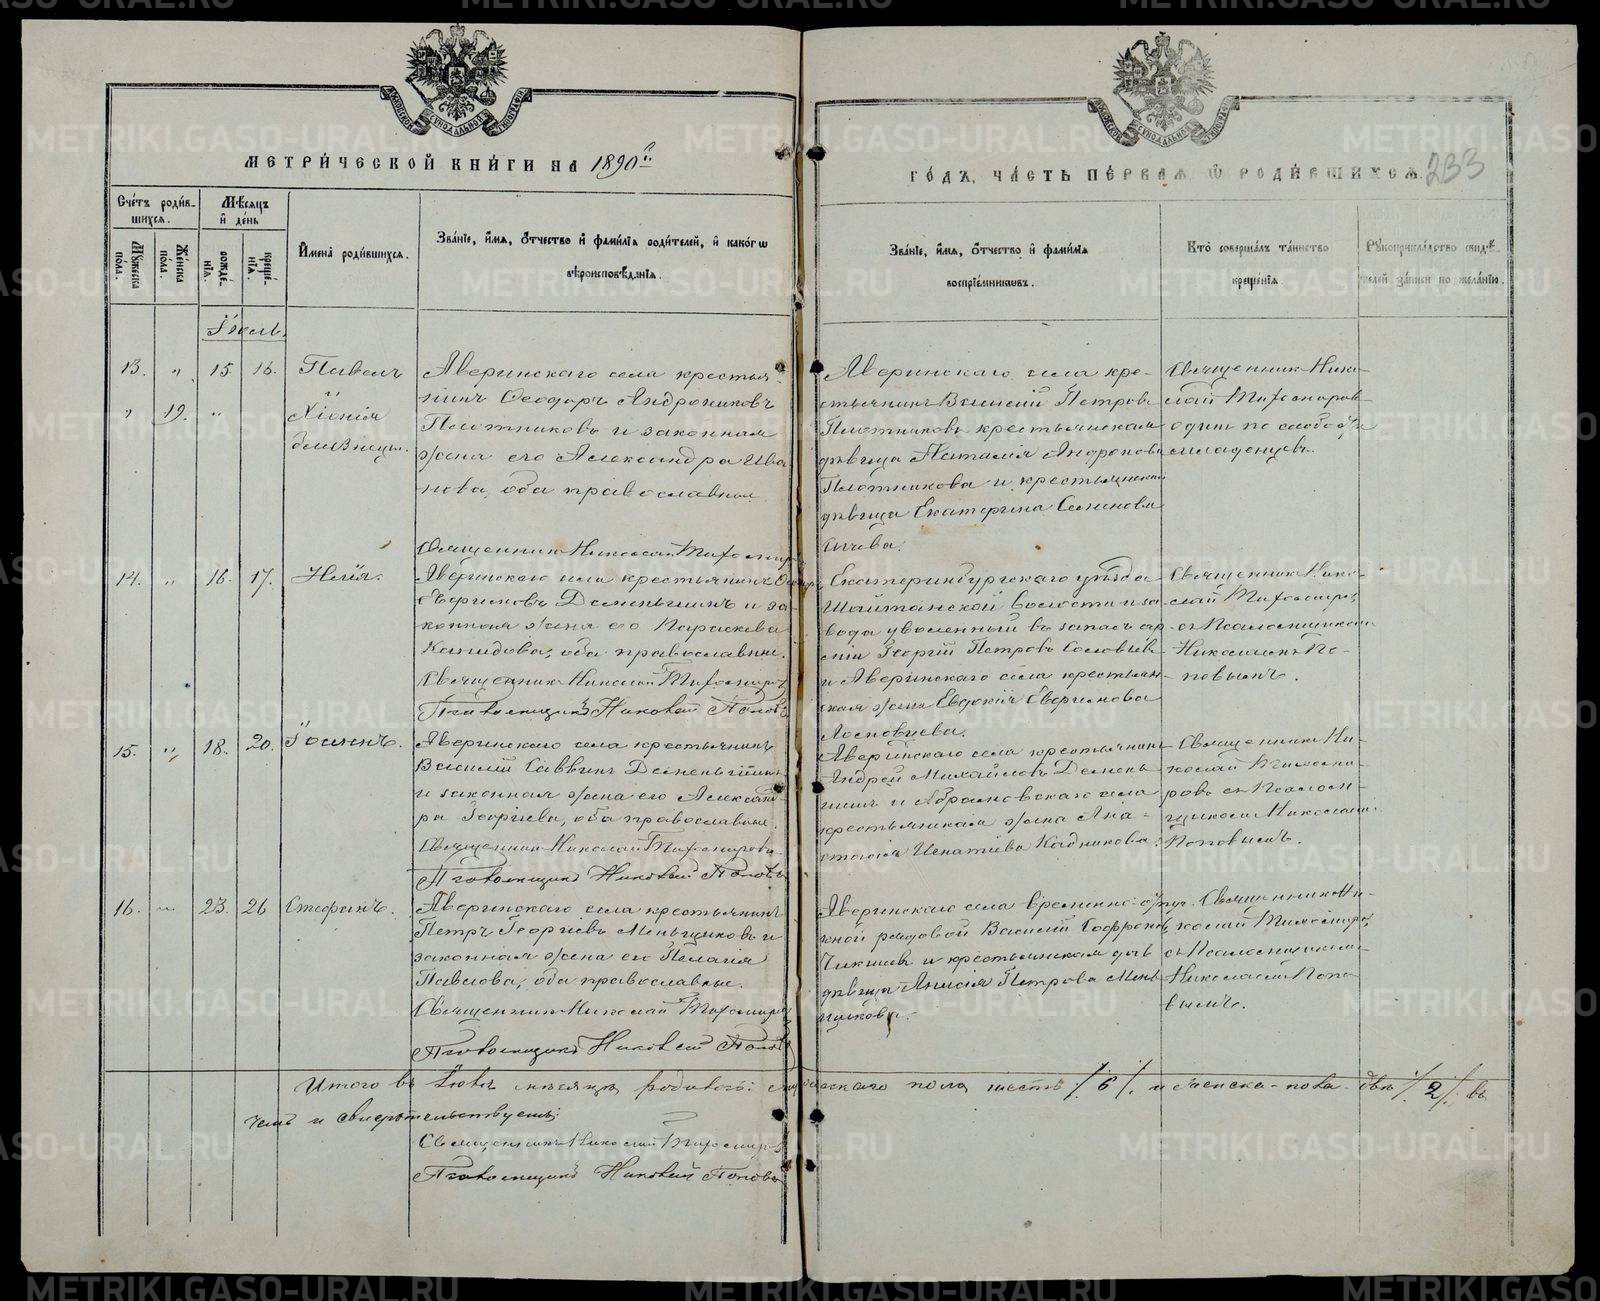 МЕТРИ́ЧЕСКОЙ КНИ́ГИ НА 1890й
ГО́ДЪ, ЧА́СТЬ ПЕ́РВАЯ, Ѡ РОДИ́ВШИХСЯ. 233
Сче́тъ роди́в-
шихся.
Мꙋжеска
пола.
Же́нска
по́ла.
Мѣ́сяцъ
и де́нь
рожде́-
нїя.
креще́-
нїя.
И́мена роди́вшихся.
Зва́нїе, и́мя, о́тчество и фами́лїя роди́телей, и како́гѡ
вѣроисповѣ́данїя.
Зва́нїе, и́мя, о́тчество и фами́лїя
воспрїе́мникѡвъ.
Кто̀ соверша́лъ та́инство
креще́нїя
Рꙋкоприкла́дство свидѣ́-
телей за́писи по жела́нїю.
Іюль.
13. „ 15. 16. Павелъ
„ 19. „ Хіонія
близнецы.
Аверинскаго села крестья-
нинъ Ѳеодоръ Андрониковъ
Плотниковъ и законная
жена его Александра Ива
нова, оба православные
Священникъ Николай Тихомиров
Аверинскаго села кре-
стьянинъ Василій Петровъ
Плотниковъ крестьянская
дѣвица Наталія Андроков
Плотникова и крестьянская
дѣвица Екатерина Семенова
Священникъ Нико-
лай Тихомировъ
одинъ по слабости
младенцевъ.
14. „ 16. 17. Илія.
Аверинскаго села крестьянинъ
Дементьинъ и за-
конная жена его Параскева
оба православные.
Священникъ Николай Тихомиров
Псаломщикъ Николай Поповъ
Екатеринбургскаго уѣзда
Шайтанской волости и за
вода уволенный въ запасъ ар
міи Георгій Петровъ Соловьевъ
и Аверинскаго села крестьян
ская жена Евдокія
Священникъ Нико-
лай Тихомировъ
съ Псаломщикомъ
Николаемъ По-
повымъ.
15. „ 18. 20. Іоаннъ.
Аверинскаго села крестьянинъ
Василій Саввинъ Дементьинъ
и законная жена его Александ-
ра Георгіева, оба православные.
Священникъ Николай Тихомировъ
Псаломщикъ Николай Поповъ
Аверинскаго села крестьянинъ
Андрей Михайловъ Демень
и Абрамовскаго села
крестьянская жена Ана-
стасія Игнатіева Кадникова.
Священникъ Ни-
колай Тихоми-
ровъ съ Псалом-
щикомъ Николаемъ
Поповымъ.
16. „ 23. 26 Стефанъ.
Аверинскаго села крестьянинъ
Петръ Георгіевъ Меньщиковъ и
законная жена его Пелагія
Павлова, оба православные.
Священникъ Николай Тихомиров
Псаломщикъ Николай Поповъ
Аверинскаго села временно-отпуск-
ной рядовой Василій Софронов
и крестьянская доч
дѣвица Анисія Петрова Мень
щикова.
Священникъ Ни-
колай Тихомиров
съ Псаломщикомъ
Николаемъ Попо-
вымъ.
Итого въ Іюлѣ мѣсяцѣ родилось: мужескаго пола шесть /6/, и женска-пола-двѣ /2/, въ
чемъ и свидѣтельствуемъ:
Священникъ Николай Тихомировъ
Псаломщикъ Николай Поповъ